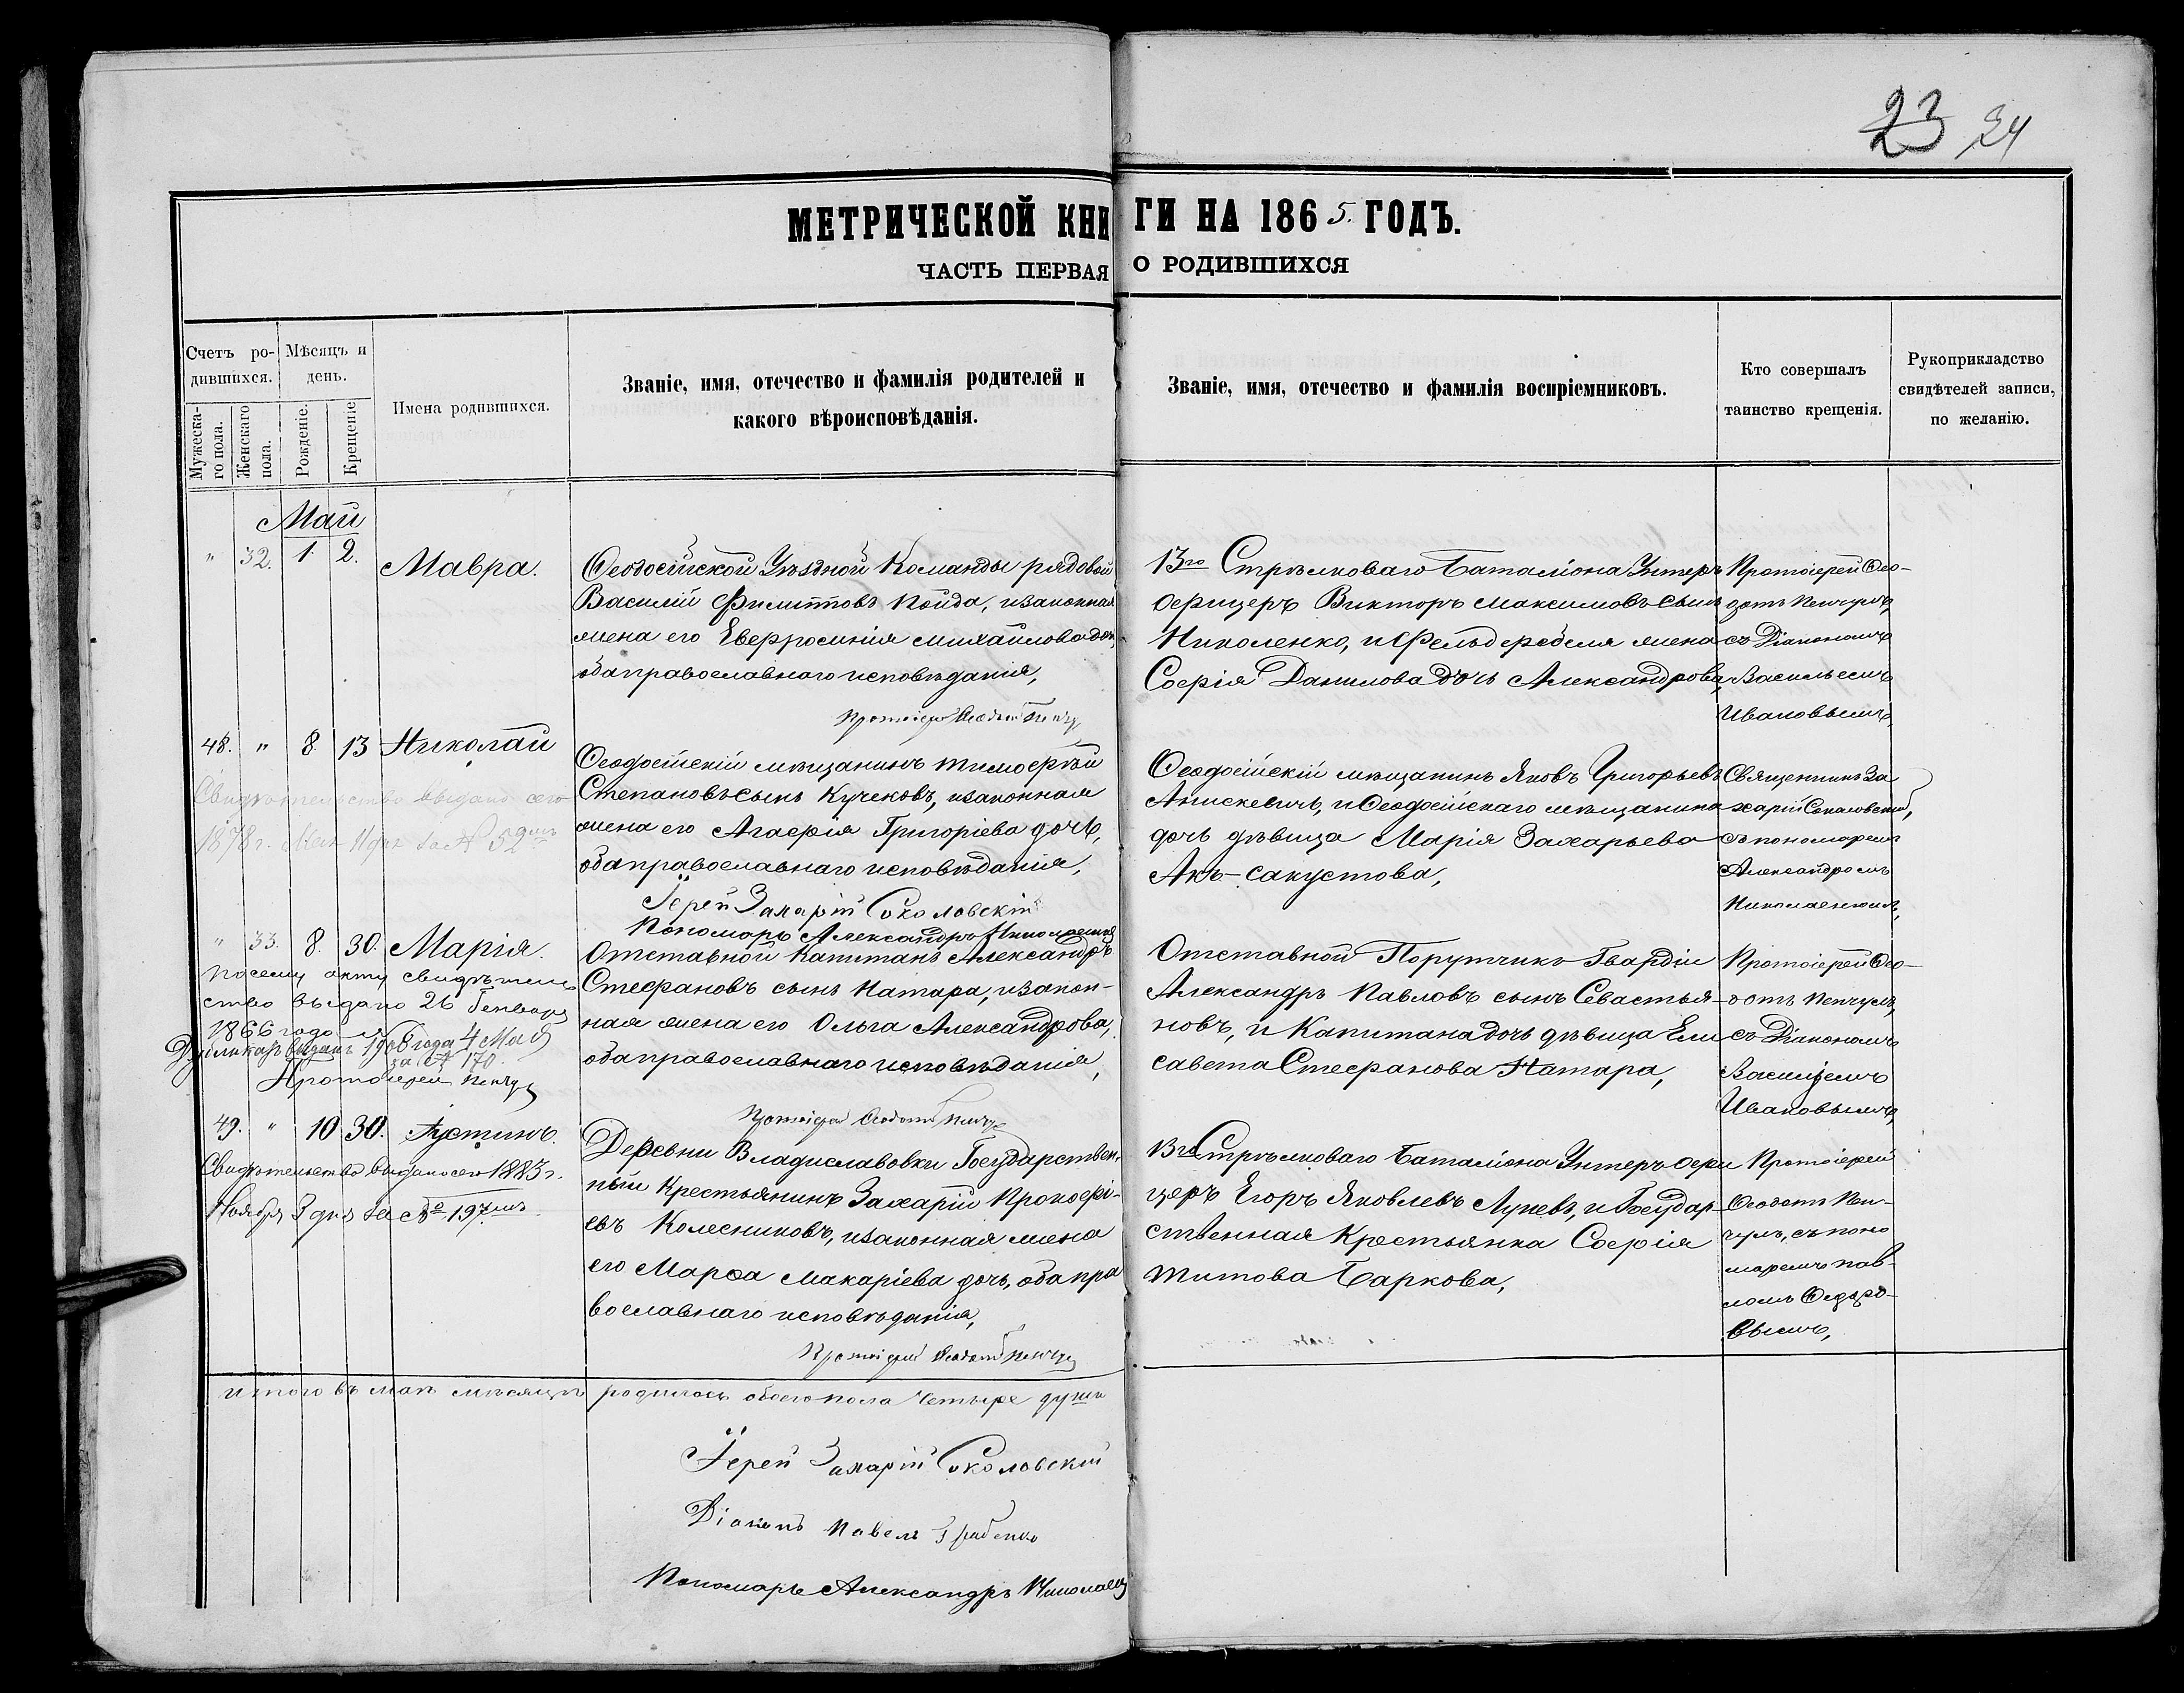 23 24
МЕТРИЧЕСКОЙ КНИГИ НА 1865. ГОДЪ.
ЧАСТЬ ПЕРВАЯ О РОДИВШИХСЯ
Счетъ ро-
дившихся.
Мужеска-
го пола.
Женскаго
пола.
Мѣсяцъ и
день.
Рожденіе.
Крещеніе
Имена родившихся.
Званіе, имя, отечество и фамилія родителей и
какого вѣроисповѣданія.
Званіе, имя, отечество и фамилія воспріемниковъ.
Кто совершалъ
таинство крещенія.
Рукоприкладство
свидѣтелей записи,
по желанію.
Май
" 32. 1. 2. Мавра.
Ѳеодосійской Уѣздной Команды рядовой
Василій Филипповъ Пойда, и законная
жена его Евфросинія Михайлова доч,
оба православнаго исповѣданія,
Протоіерей Ѳеодотъ
13го Стрѣлковаго Баталіона Унтеръ
офицеръ Викторъ Максимовъ сынъ
Николенко, и Фельдфебеля жена
Софія Данилова дочь Александрова,
Протоіерей Ѳео-
дотъ
съ Діакономъ
Васильемъ
Ивановымъ,
48. " 8. 13 Николай
Свидѣтельство выдано сего
1878 г. за № 52
Ѳеодосійскій мѣщанинъ Тимофѣй
Степановъ сынъ Кучековъ, и законная
жена его Агафія Григоріева дочь,
оба православнаго исповѣданія,
Іерей Захарій Соколовскій
Пономарь Александръ
Ѳеодосійскій мѣщанинъ Яковъ Григорьевъ
Анискевичъ, и Ѳеодосійскаго мѣщанина
дочь дѣвица Марія Захарьева
Акъ-Сакустова,
Священникъ За
харій Соколовскій,
съ пономаремъ
Александромъ
" 33. 8. 30. Марія.
По сему акту свидѣтель
ство выдано 26 Генваря
1866 года
Дубликат выдан 1908 года 4 Мая
за № 170.
Протоіерей
Отставной Капитанъ Александръ
Стефановъ сынъ Натара, и закон-
ная жена его Ольга Александрова,
оба православнаго исповѣданія,
Протоіерей Ѳеодотъ
Отставной Порутчикъ Гвардіи
Александръ Павловъ сынъ Севастья-
новъ, и Капитана дочь дѣвица Ели
савета Стефанова Натара,
Протоіерей Ѳео-
дотъ
съ Діакономъ
Василіемъ
Ивановымъ,
49. " 10. 30. Іустинъ.
Свидѣтельство выдано сего 1883 г.
Ноября 3 дня за № 197
Деревни Владиславовки Государствен-
ный Крестьянинъ Захарій Прокофі-
евъ Колесниковъ, и законная жена
его Марѳа Макаріева дочь, оба пра
вославнаго исповѣданія,
Протоіерей Ѳеодотъ
13го Стрѣлковаго Баталіона Унтеръ офи
церъ Егоръ Яковлевъ Лунев, и Государ-
ственная Крестьянка Софія
Титова Баркова,
Протоіерей
Ѳеодотъ
съ поно
маремъ Пав-
ломъ Ѳедоро-
вымъ,
Итого въ маѣ мѣсяцѣ родилось обоего пола четыре души
Іерей Захарій Соколовскій
Діаконъ Павелъ
Пономарь Александръ